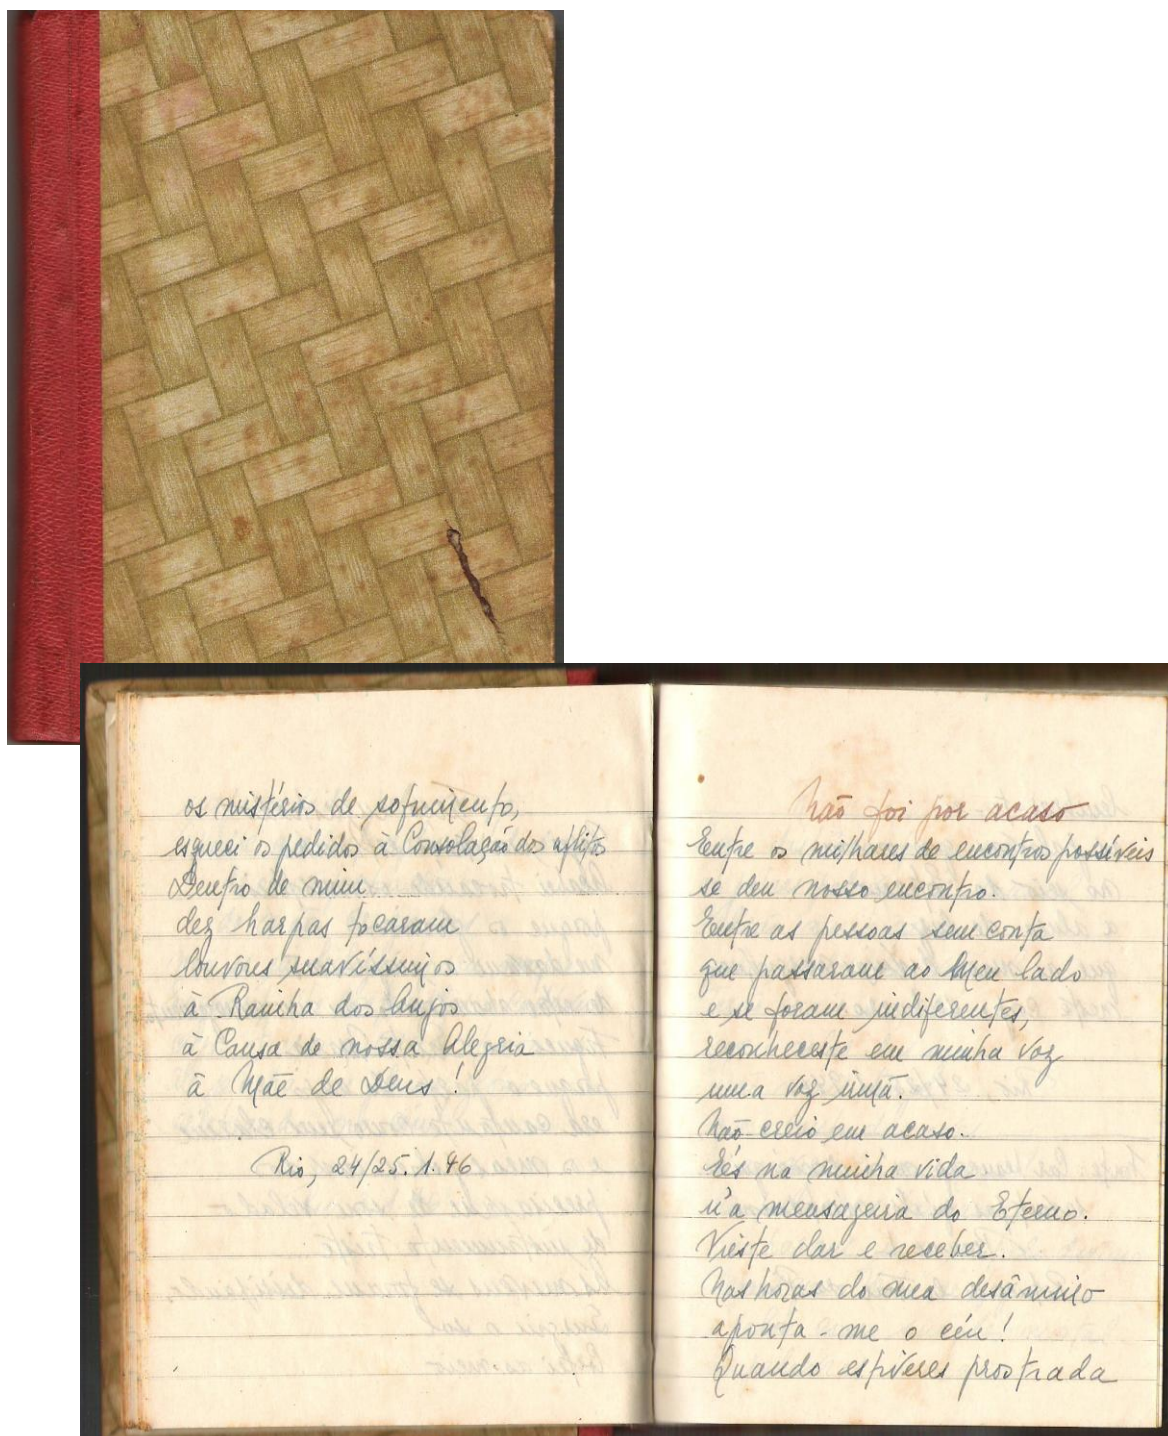 os mistérios de sofrimento,
esqueci os pedidos à Consolação dos aflitos
Dentro de mim
dez harpas tocaram
louvores suavíssimos
à Rainha dos Anjos
à Causa de nossa Alegria
à Mãe de Deus!
Rio, 24/25.1.46
Não foi por acaso
Entre os milhares de encontros possíveis
se deu nosso encontro.
Entre as pessoas sem conta
que passaram ao meu lado
e se foram indiferentes,
reconheceste em minha voz
uma voz irmã.
Não creio em acaso.
És na minha vida
u'a mensageira do Eterno.
Vieste dar e receber.
Nas horas do meu desânimo
aponta-me o céu!
Quando estiveres prostrada